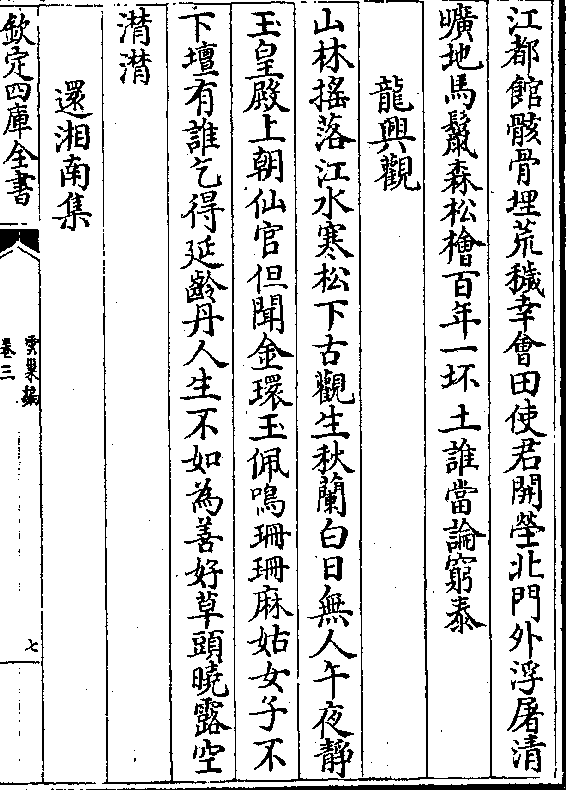 江都館骸骨埋荒穢幸會田使君開塋北門外浮屠清
曠地馬鬛森松檜百年一坏土誰當論窮泰
龍興觀
山林搖落江水寒松下古觀生秋蘭白日無人午夜靜
玉皇殿上朝仙官但聞金環玉佩鳴珊珊麻姑女子不
下壇有誰乞得延齡丹人生不如為善好草頭曉露空
潸潸
還湘南集
欽定四庫全書
雲巢編
卷三
七